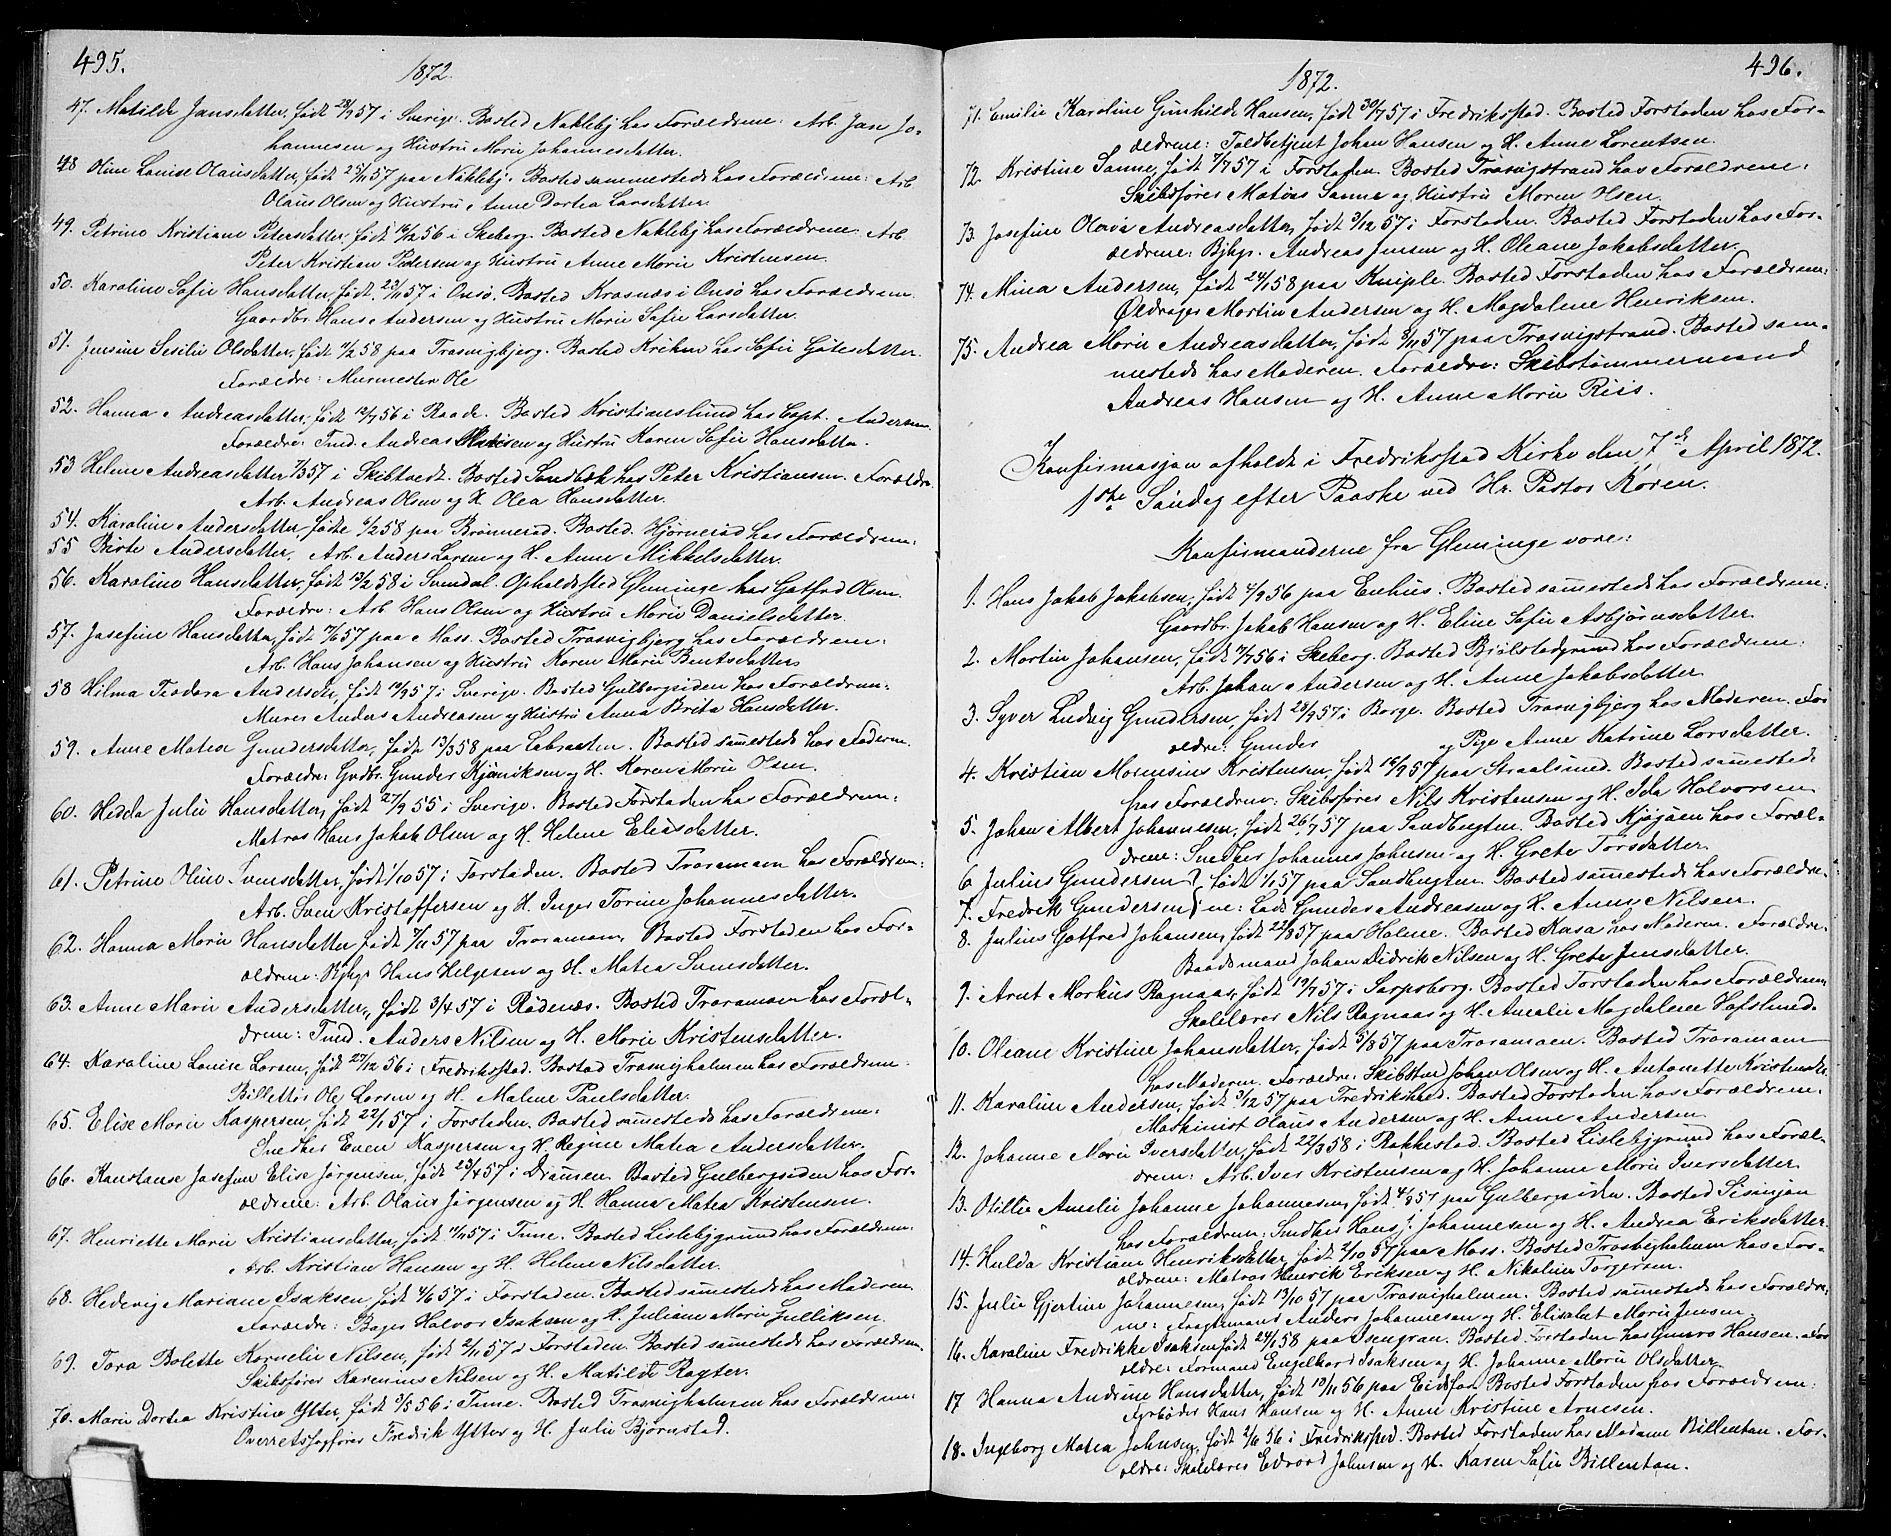 495.
1872.
47. Matilde Jansdatter, født 28/9 57 i Sverige. Bosted Naklebj hos Forældrene: Arb. Jan Jo-
hannesen og Hustru Marie Johannesdatter.
48 Oline Louise Olausdatter, født 25/11 57 paa Naklebj. Bosted sammesteds hos Forældrene: Arb
Olaus Olsen og Hustru Anne Dortea Larsdatter.
49. Petrine Kristiane Petersdatter, født 16/2 56 i Skeberg. Bosted Naklebj hos Forældrene Arb.
Peter Kristian Pedersen og Hustru Anne Marie Kristensen.
50. Karoline Sofie Hansdatter, født 23/11 57 i Onsø. Bosted Krosnæs i Onsø hos Forældrene
Gaardbr. Hans Andersen og Hustru Marie Sofie Larsdatter.
51. Jensine Sesilie Olsdatter, født 11/2 58 paa Trosvigbjerg. Bosted Kriken hos Sofie Götesdatter.
Forældre: Murmester Ole
52. Hanna Andreasdatter, født 12/7 56 i Raade. Bosted Kristianslund hos Capt. Andersen
Forældre: Tmd. Andreas og Hustru Karen Sofie Hansdatter.
53 Helene Andreasdatter 7/3 57 i Skibtvedt. Bosted Sandbæk hos Peter Kristiansen. Forældre
Arb. Andreas Olsen og H. Olea Hansdatter.
54. Karoline Andersdatter, fødte 6/2 58 paa Brönnerød. Bosted. Hjørnerød hos Forældrene:
55 Birte Andersdatter, Arb. Anders Larsen og H. Anne Mikkelsdatter.
56. Karoline Hansdatter, født 13/2 58 i Svindal. Opholdssted Gleminge hos Gotfred Olsen.
Forældre: Arb Hans Olsen og Hustru Marie Danielsdatter.
57. Josefine Hansdatter, født 7/6 57 paa Moss. Bosted Trosvigbjerg hos Forældrene:
Arb. Hans Johansen og Hustru Karen Marie Bentsdatter.
58 Hilma Teodora Andersen, født 19/9 57 i Sverige. Bosted Gulbergsiden hos Forældrene:
Murer Anders Andreasen og Hustru Anna Brita Hansdatter.
59. Anne Matea Gundersdatter, født 13/3 58 paa Labraaten. Bosted sammesteds hos Faderen.
Forældre: Grdbr. Gunder Kjøniksen og H. Karen Marie Olsen.
60. Hedda Julie Hansdatter, født 27/9 55 i Sverige. Bosted Forstaden hos Forældrene:
Matros Hans Jakob Olsen og H. Helene Eliasdatter.
61. Petrine Oline Svensdatter, født 1/10 57 i Forstaden. Bosted Traramoen hos Forældrene:
Arb. Sven Kristoffersen og H. Inger Torine Johannesdatter.
62. Hanna Marie Hansdatter født 7/11 57 paa Traramoen, Bosted Forstaden hos For-
ældrene: Bjhgr Hans Helgesen og H. Matea Svensdatter.
63. Anne Marie Andersdatter, født 3/4 57 i Rødenæs. Bosted Traramoen hos Foræl-
drene: Tmd. Anders Nilsen og H. Marie Kristensdatter.
64. Karoline Louise Larsen, født 27/12 56 i Fredrikstad. Bosted Trosvigholmen hos Forældrene.
Billettør Ole Larsen og H. Malene Paulsdatter.
65. Elise Marie Kaspersen, født 22/1 57 i Forstaden. Bosted sammesteds hos Forældrene:
Snedker Even Kaspersen og H. Regine Matea Andersdatter.
66. Konstanse Josefine Elise Jørgensen, født 23/4 57 i Dramsen. Bosted Gulbergsiden hos For-
ældrene: Arb. Olaus Jørgensen og H. Hanna Matea Kristensen.
67. Henriette Marie Kristiansdatter, født 11/11 57 i Tune. Bosted Lislebygrund hos Forældrene:
Arb. Kristian Hansen og H. Helene Nilsdatter.
68. Hedevig Mariane Isaksen, født 4/6 57 i Forstaden. Bosted sammesteds hos Moderen
Forældre: Bager Halvor Isaksen og H. Juliane Marie Gulliksen.
69. Tora Bolette Kornelie Nilsen, født 2/11 57 i Forstaden. Bosted sammesteds hos Forældrene.
Skibsfører Karenius Nilsen og H. Matilde Rogter.
70. Marie Dortea Kristine Ytter, født 3/5 56 i Tune. Bosted Trosvigholmen hos Forældrene:
Overretssagfører Fredrik Ytter og H. Julie Bjørnstad.
496.
1872.
71. Emilie Karoline Gunhilde Hansen, født 30/7 57 i Fredrikstad. Bosted Forstaden hos For-
ældrene: Toldbetjent Johan Hansen og H. Anne Lorentsen.
72. Kristine Sanne, født 7/7 57 i Forstaden. Bosted Trosvigstrand hos Forældrene:
Skibsfører Matias Sanne og Hustru Maren Olsen.
73. Josefine Olava Andreasdatter, født 9/12 57 i Forstaden. Bosted Forstaden hos For-
ældrene: Bjhgr. Andreas Jensen og H. Oleane Jakobsdatter.
74. Mina Andersen, født 24/1 58 paa Kniple. Bosted Forstaden hos Forældrene:
Øldrager Martin Andersen og H. Magdalene Henriksen.
75. Andrea Marie Andreasdatter, født 8/11 57 paa Trosvigstrand. Bosted sam-
mesteds hos Moderen. Forældre: Skibstømmermand
Andreas Hansen og H. Anne Marie Riis.
Konfirmasjon afholdt i Fredrikstad Kirke den 7de April 1872.
1ste Söndag efter Paaske ved Hr. Pastor Koren.
Konfirmanderne fra Gleminge vare:
1. Hans Jakob Jakobsen, født 4/9 56 paa Enhus. Bosted sammesteds hos Forældrene:
Gaardbr. Jakob Hansen og H. Eline Sofie Asbjørnsdatter.
2. Martin Johansen, født 7/7 56 i Skeberg. Bosted Bjølstadgrund hos Forældrene:
Arb. Johan Andersen og H. Anne Jakobsdatter.
3. Syver Ludvig Gundersen, født 28/9 57 i Borge. Bosted Trosvigbjerg hos Moderen. For
ældre: Gunder og Pige Anne Katrine Larsdatter.
4. Kristian Morensius Kristensen, født 15/9 57 paa Straalsund. Bosted sammesteds
hos Forældrene: Skibsfører Nils Kristensen og H. Ida Halvorsen
5. Johan Albert Johannesen, født 26/7 57 paa Sandbugten. Bosted Kjøgöen hos Foræl-
drene: Snedker Johannes Johnsen og H. Grete Torsdatter.
6 Julius Gundersen } født 1/1 57 paa Sandbugten. Bosted sammesteds hos Forældre-
7. Fredrik Gundersen } ne: Lods Gunder Andreasen og H. Anne Nilsen.
8. Julius Gotfred Johansen, født 22/8 57 paa Holme. Bosted Kasa hos Moderen. Forældre.
Baadsmand Johan Didrik Nilsen og H. Grete Jensdatter.
9. Arnt Markus Ragnaas, født 19/7 57 i Sarpsborg. Bosted Forstaden hos Forældrene
Skolelærer Nils Ragnaas og H. Amalie Magdalene Hafslund.
10. Oleane Kristine Johansdatter, født 5/8 57 paa Traramoen. Bosted Traramoen
hos Moderen. Forældre: Skibstmr Johan Olsen og H. Antonette Kristensdtr.
11. Karoline Andersen, født 3/12 57 paa Fredrikshald. Bosted Forstaden hos Forældrene.
Maskinist Olaus Andersen og H. Anne Andersen
12. Johanne Marie Iversdatter, født 22/3 58 i Rakkestad. Bosted Lislebygrund hos Foræl-
drene: Arb. Iver Kristensen og H. Johanne Marie Iversdatter.
13. Otillie Amalie Johanne Johannesen, født 4/9 57 paa Gulbergsiden. Bosted Simenjan
hos Forældrene: Snedker Hans J. Johannesen og H. Andrea Eriksdatter.
14. Hulda Kristiane Henriksdatter, født 2/10 57 paa Moss. Bosted Trosvigholmen hos For-
ældrene: Matros Henrik Eriksen og H. Nikoline Torgersen.
15. Julie Gjertine Johannesen, født 13/10 57 paa Trosvigholmen. Bosted sammesteds hos Forældre-
ne: Fragtmand Anders Johannesen og H. Elisabet Marie Jensen.
16. Karoline Fredrikke Isaksen født 24/1 58 paa Isengran. Bosted Forstaden hos Gunerø Hansen. For
ældre: Formand Engelhard Isaksen og H. Johanne Marie Olsdatter
17 Hanna Andrine Hansdatter, født 19/11 56 paa Eidsfos Bosted Forstaden hos Forældrene:
Fyrbøder Hans Hansen og H. Anne Kristine Arnesen.
18. Ingeborg Matea Johnsen, født 2/6 56 i Fredrikstad. Bosted Forstaden hos Madame Billentan. For-
ældre: Skolelærer Edvard Johnsen og H. Karen Sofie Billentan.